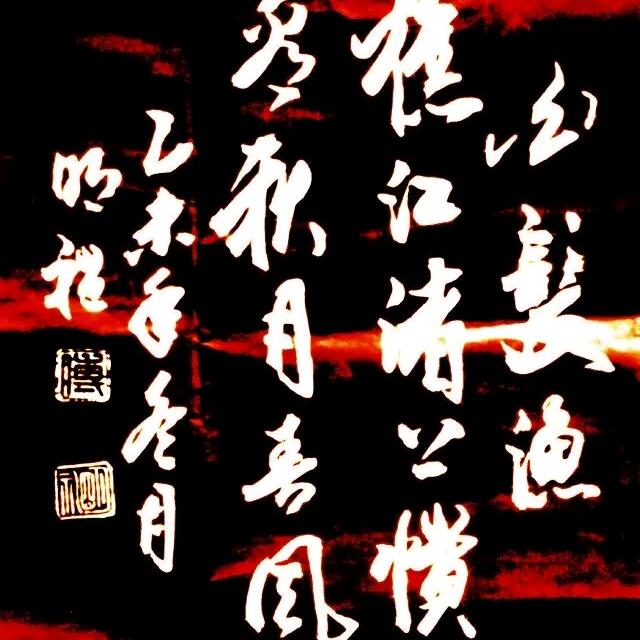 白髮漁
樵江渚上慣
看秋月春風
乙未年冬月
明禮